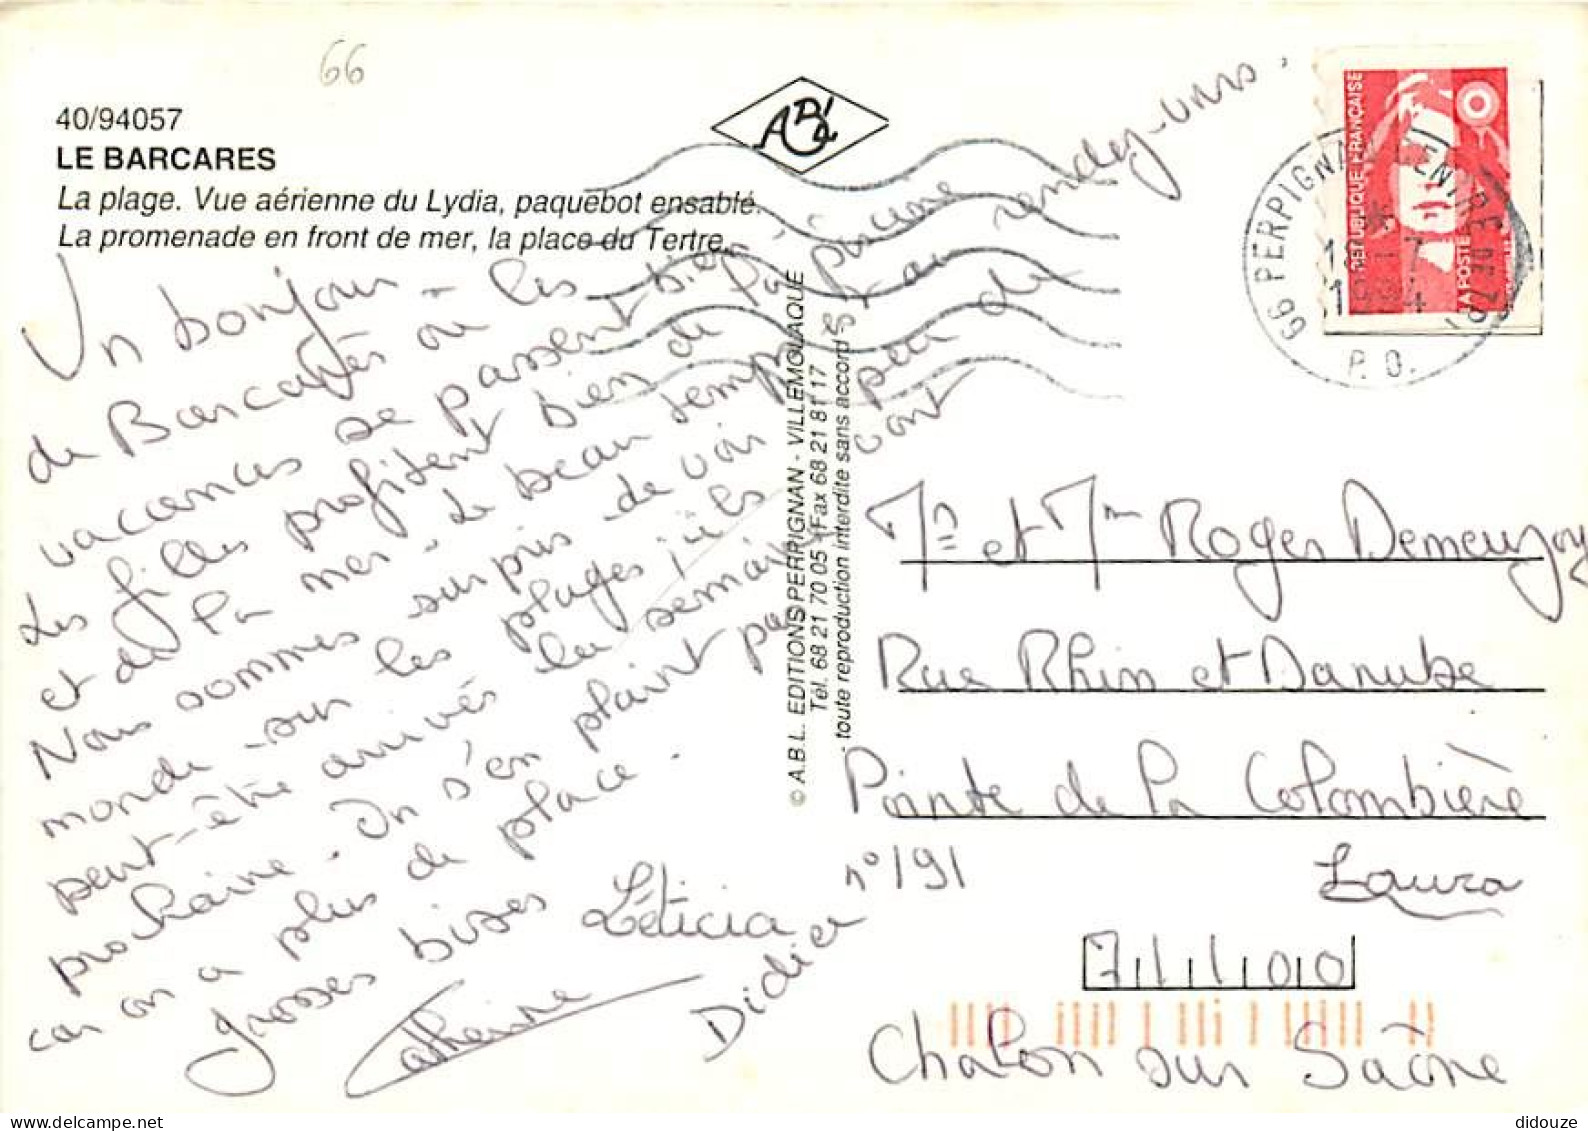 66
40/94057
LE BARCARES
La plage. Vue aérienne du Lydia, paquebot ensablé.
La promenade en front de mer, la place du Tertre.
Un bonjour
de Barcarès où les
vacances se passent bien.
Les filles profitent bien de la piscine
et de la mer. Le beau temps au rendez-vous.
Nous sommes surpris de voir peu de
monde sur les plages, ils vont
peut-être arrivés la semaine
prochaine. On s'en plaint pas
car on a plus de place.
grosses bises Léticia
Catherine
Didier
© A.B.L. EDITIONS PERPIGNAN - VILLEMOLAQUE
Tél. 68 21 70 05 - Fax 68 21 81 17
- toute reproduction interdite sans accord -
REPUBLIQUE FRANÇAISE
LA POSTE
66 PERPIGNAN
1994
P.O.
Mr et Mme Roger Demeuzoy
Rue Rhin et Danube
Pointe de la Colombière
n° 191
Laura
71100
Chalon sur Saône
didouze